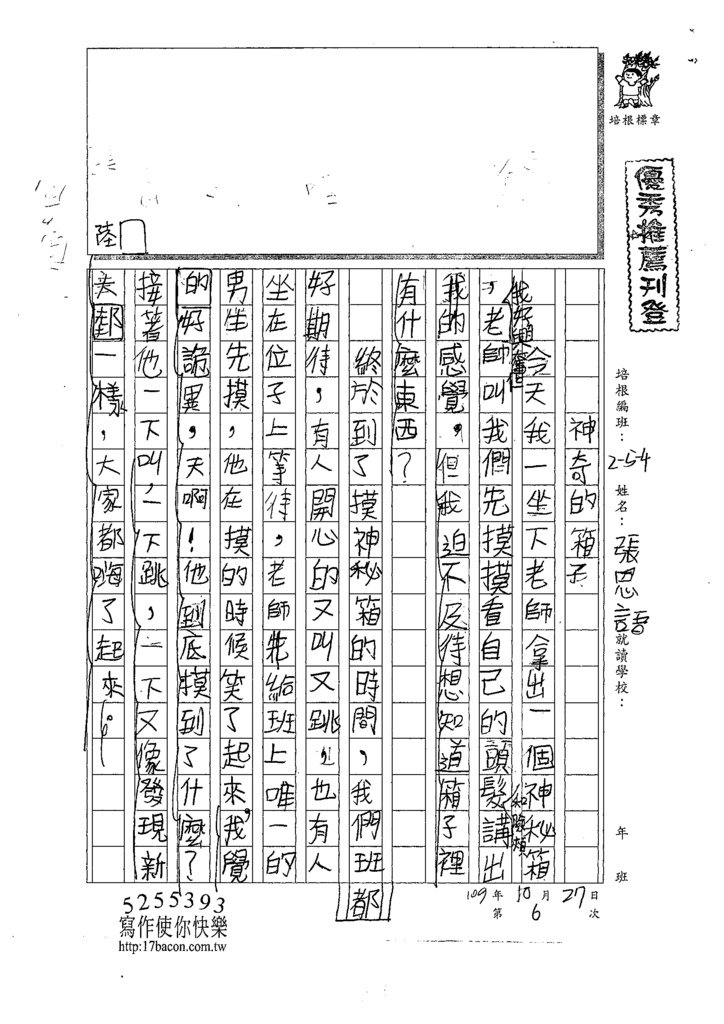 培根標章
優秀推薦刊登
培根編班：2-54 姓名：張思語 就讀學校： 年 班
109年10月27日
第6次
神奇的箱子
今天我一坐下老師拿出一個神秘箱
我好興奮但
，老師叫我們先摸摸看自己的頭髮講出
我的感覺。但我迫不及待想知道箱子裡
有什麼東西？
終於到了摸神秘箱的時間，我們班都
好期待，有人開心的又叫又跳，也有人
坐在位子上等待，老師先給班上唯一的
男生先摸，他在摸的時候笑了起來，我覺
的好詭異，天啊！他到底摸到了什麼？
接著他一下叫，一下跳，一下又像發現新
大陸一樣，大家都嗨了起來。
陸
5255393
寫作使你快樂
http:17bacon.com.tw